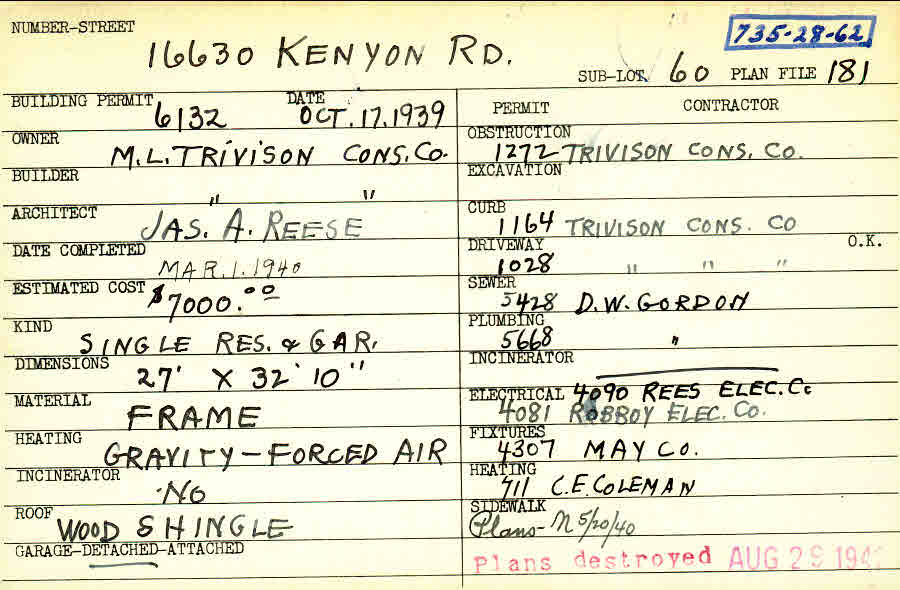 NUMBER-STREET
16630 KENYON RD.
735-28-62
SUB-LOT. 60 PLAN FILE 181
BUILDING PERMIT 6132 DATE OCT. 17. 1939
OWNER M.L. TRIVISON CONS. CO.
BUILDER " "
ARCHITECT JAS. A. REESE
DATE COMPLETED MAR. 1. 1940
ESTIMATED COST $7000.00
KIND SINGLE RES. & GAR.
DIMENSIONS 27' X 32' 10"
MATERIAL FRAME
HEATING GRAVITY - FORCED AIR
INCINERATOR NO
ROOF WOOD SHINGLE
GARAGE-DETACHED-ATTACHED
PERMIT CONTRACTOR
OBSTRUCTION 1272 TRIVISON CONS. CO.
EXCAVATION
CURB 1164 TRIVISON CONS. CO
DRIVEWAY 1028 " " " O.K.
SEWER 5428 D.W. GORDON
PLUMBING 5668 "
INCINERATOR
ELECTRICAL 4090 REES ELEC. Co
4081 ROBBOY ELEC. Co.
FIXTURES 4307 MAY CO.
HEATING 711 C.E. COLEMAN
SIDEWALK
Plans- N 5/20/40
Plans destroyed AUG 29